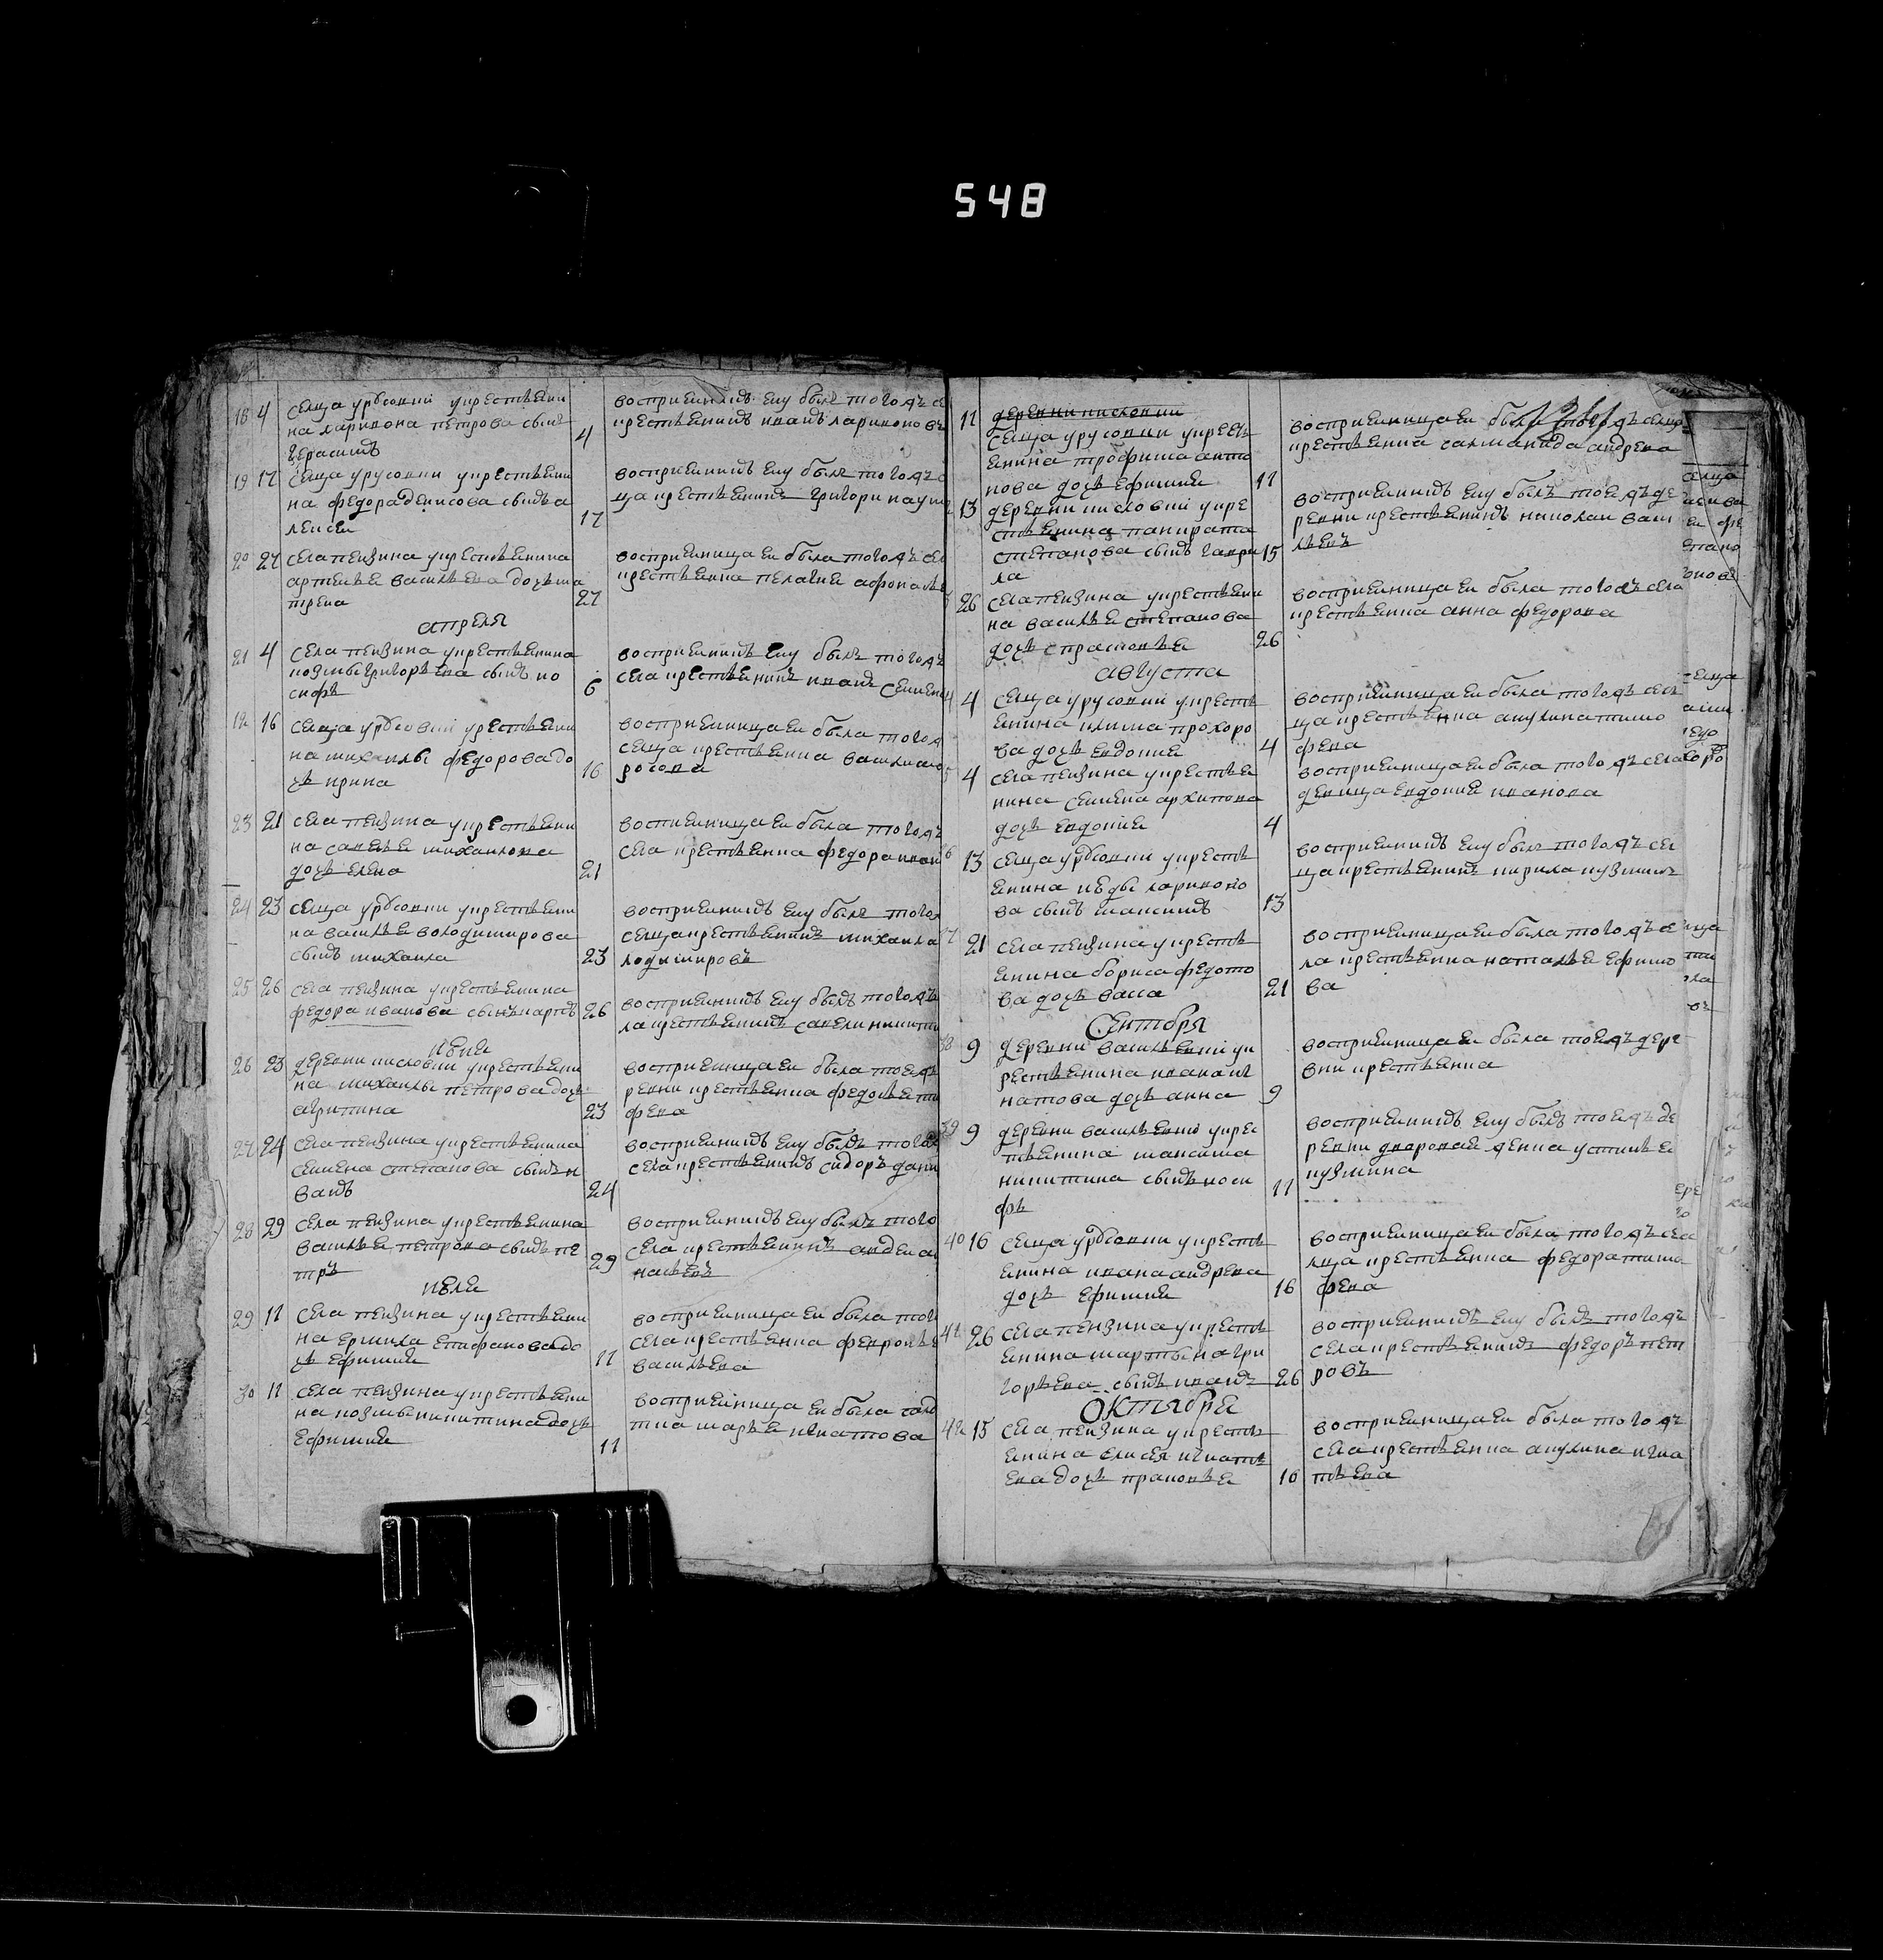 548
18 4 селца урусовки у крестьяни
на ларивона петрова сынъ
герасимъ
4
восприемникъ ему былъ того жъ се
крестьянинъ иванъ ларивоновъ
19 17 селца урусовки у крестьяни
на федора денисова сынъ а
лексеи
17
восприемникъ ему былъ того жъ с
ца крестьянинъ григори наум
20 27 села пензина у крестьянина
артемья васильева дочь ма
трена
27
восприемница еи была того жъ сел
крестьянка пелагия афонасье
апреля
21 4 села пензина у крестьянина
козмы григорьева сынъ ио
сифъ
6
восприемникъ ему былъ того жъ
села крестьянинъ иванъ семено
22 16 селца урусовки у крестьяни
на михаилы федорова до
чь ирина
16
восприемница еи была того ж
селца крестьянка
23 21 села пензина у крестьяни
на савелья михаилова
дочь елена
21
восприемница еи была того жъ
села крестьянка федора иван
24 23 селца урусовки у крестьяни
на василья володимирова
сынъ михаила
23
восприемникъ ему былъ того ж
селца крестьянинъ михаила
лодимировъ
25 26 села пензина у крестьянина
федора иванова сынъ карпъ
26
восприемникъ ему былъ того жъ
ла крестьянинъ савели никити
июня
26 23 деревни кисловки у крестьяни
на михаилы петрова дочь
агрипина
23
восприемница еи была тое жъ
ревни крестьянка федосья ти
фева
27 24 села пензина у крестьянина
семена степанова сынъ и
ванъ
24
восприемникъ ему былъ того ж
села крестьянинъ сидоръ дани
28 29 села пензина у крестьянина
василья петрова сынъ пе
тръ
29
восприемникъ ему былъ того
села крестьянинъ
насьевъ
июля
29 11 села пензина у крестьяни
на ермила епифанова до
чь ефимия
11
восприемница еи была того
села крестьянка февронья
васильева
30 11 села пензина у крестьяни
на козмы никитина дочь
ефимия
11
восприемница еи была
марья игнатова
11 деревни кисловки
селца урусовки у кресть
янина трофима анто
нова дочь ефимия
11
восприемница еи была того жъ селца
крестьянка саламанида андрева
13 деревни кисловки у кре
стьянина панкрата
степанова сынъ гаври
ла
15
восприемникъ ему былъ тое жъ де
ревни крестьянинъ николаи васи
льевъ
26 села пензина у крестьяни
на василья степанова
дочь
26
восприемница еи была того жъ села
крестьянка анна федорова
августа
4 4 селца урусовки у кресть
янина клима прохоро
ва дочь евдокия
4
восприемница еи была того жъ сел
ца крестьянка акулина тимо
фева
5 4 села пензина у крестья
нина семена архипова
дочь евдокия
4
восприемница еи была того жъ села
девица евдокия иванова
6 13 селца урусовки у кресть
янина
ва сынъ максимъ
13
восприемникъ ему былъ того жъ сел
ца крестьянинъ кирила кузмин
7 21 села пензина у кресть
янина бориса федото
ва дочь васса
21
восприемница еи была того жъ се
ла крестьянка наталья ефимо
ва
сентября
38 9 деревни васильевки у к
рестьянина ивана иг
натова дочь анна
9
восприемница еи была тое жъ дере
вни крестьянка
39 9 деревни васильевки у крес
тьянина максима
никитина сынъ иоси
фъ
11
восприемникъ ему былъ тое жъ де
ревни дворовая девка устинья
кузмина
40 16 селца урусовки у кресть
янина ивана андрева
дочь ефимия
16
восприемница еи была того жъ се
лца крестьянка федора тимо
фева
41 26 села пензина у кресть
янина мартына гри
горьева сынъ иванъ
26
восприемникъ ему былъ того жъ
села крестьянинъ федоръ пет
ровъ
октября
42 15 села пензина у кресть
янина елисея игнать
ева дочь прасковья
16
восприемница еи была того жъ
села крестьянка акулина игна
тьева